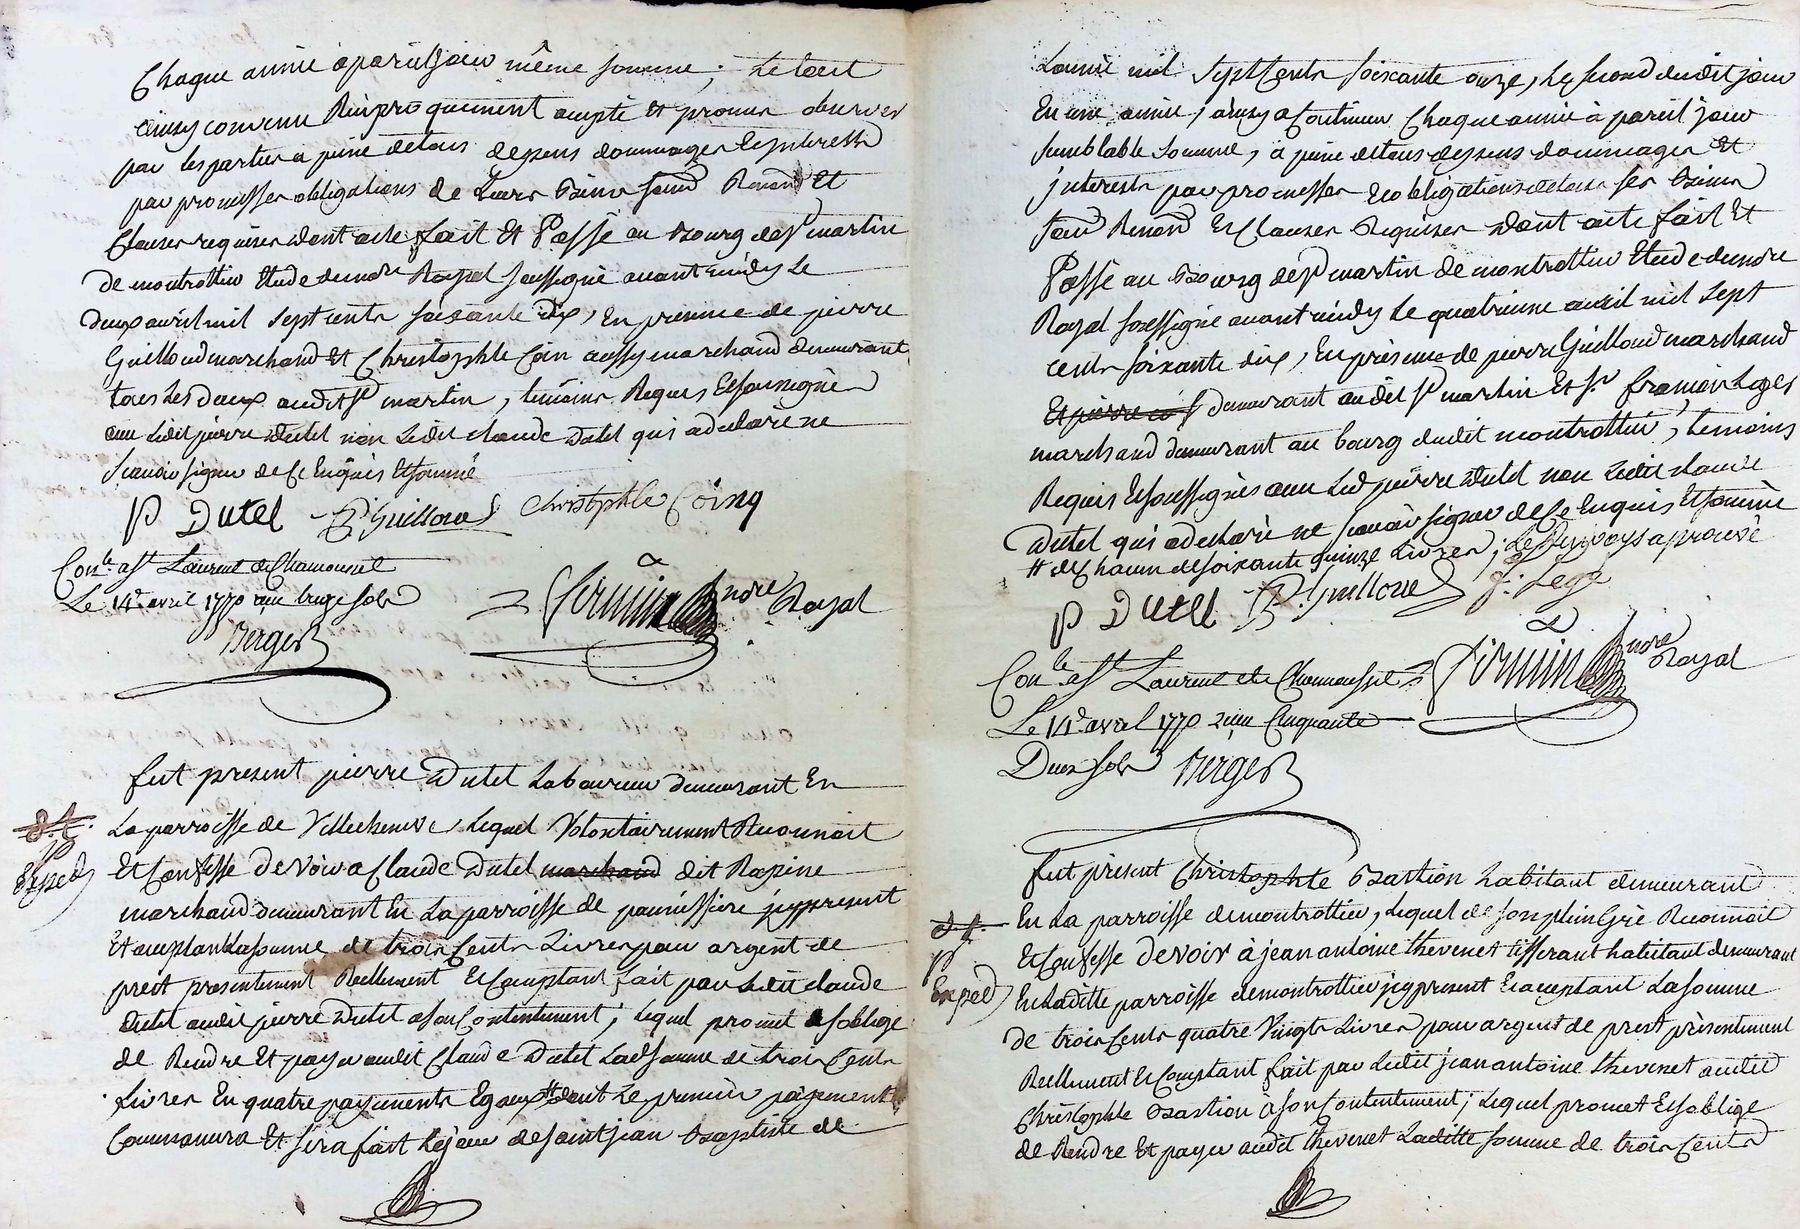 Chaque année a pareil jour même somme ; Le tout
ainsy convenu Réciproquement accepté Et promis observer
par les parties a peine de tous depens dommages Et interests
par promesses obligations de Leurs biens soum Renon Et
Clauses requises dont acte fait Et Passé au Bourg de St martin
de montrottier Etude du nore Royal soussigné avant midy Le
deux avril mil sept cents soixante dix, En presence de pierre
Guilloud marchand Et Christophle Coin aussy marchand demeurant
tous Les deux audit St martin, témoins Requis Et soussignés
avec Ledit pierre Dutel non Ledit claude Dutel qui a déclaré ne
scavoir signer de Ce Enquis Et sommé
P Dutel P Guilloud Christophle Coing
Conlé a St Laurent de Chamousset
Le 14e avril 1770 reçu treize sols
Fermin nore Royal
Berger
fut present pierre Dutel Laboureur demeurant En
La parroisse de Villecheneve, Lequel Volontairement Reconnoit
Et Confesse Devoir a Claude Dutel marchand dit Rapine
Exped
marchand demeurant En La parroisse de jcy present
Et acceptant La somme de trois Cents Livres pour argent de
prest presentement Réellement Et Comptant fait par Ledit claude
Dutel audit pierre Dutel a son Contentement ; Lequel promet Et s'oblige
de Rendre Et payer audit Claude Dutel Lad somme de trois Cents
Livres En quatre payements Egaux # dont Le premier payement
Commancera Et sera fait Le jour de saint jean Baptiste de
L'année mil sept Cents soixante onze, Le second dudit jour
En une année, ainsy a Continuer Chaque année à pareil jour
semblable somme, a peine de tous depens dommages Et
interests par promesses Et obligations de tous ses biens
soum Renon Et Clauses Requises dont acte fait Et
Passé au Bourg de St martin de montrottier Etude du nore
Royal soussigné avant midy Le quatrieme avril mil sept
cents soixante dix, En présence de pierre Guilloud marchand
Et pierre demeurant audit St martin Et Sr
marchand demeurant au bourg dudit montrottier, témoins
Requis Et soussignés avec Led pierre Dutel non Ledit claude
Dutel qui a declaré ne scavoir signer de Ce Enquis Et sommé
# de Chacun de soixante quinze Livres ; Le Renvoy aprouvé
P Dutel P. Guilloud
Fermin nore Royal
Conlé a St Laurent de Chamousset
Le 14e avril 1770 reçu Cinquante
Deux sols Berger
fut présent Christophle Bastion habitant demeurant
En La parroisse de montrottier, Lequel de son plein Gré Reconnoit
Et Confesse Devoir à jean antoine thevenet tisserant habitant demeurant
Exped
En Laditte parroisse de montrottier jcy present Et acceptant La somme
de trois Cents quatre Vingts Livres pour argent de prest présentement
Réellement Et Comptant fait par Ledit jean antoine thevenet audit
Christophle Bastion à son Contentement ; Lequel promet Et s'oblige
de Rendre Et payer audit thevenet Laditte somme de trois Cents